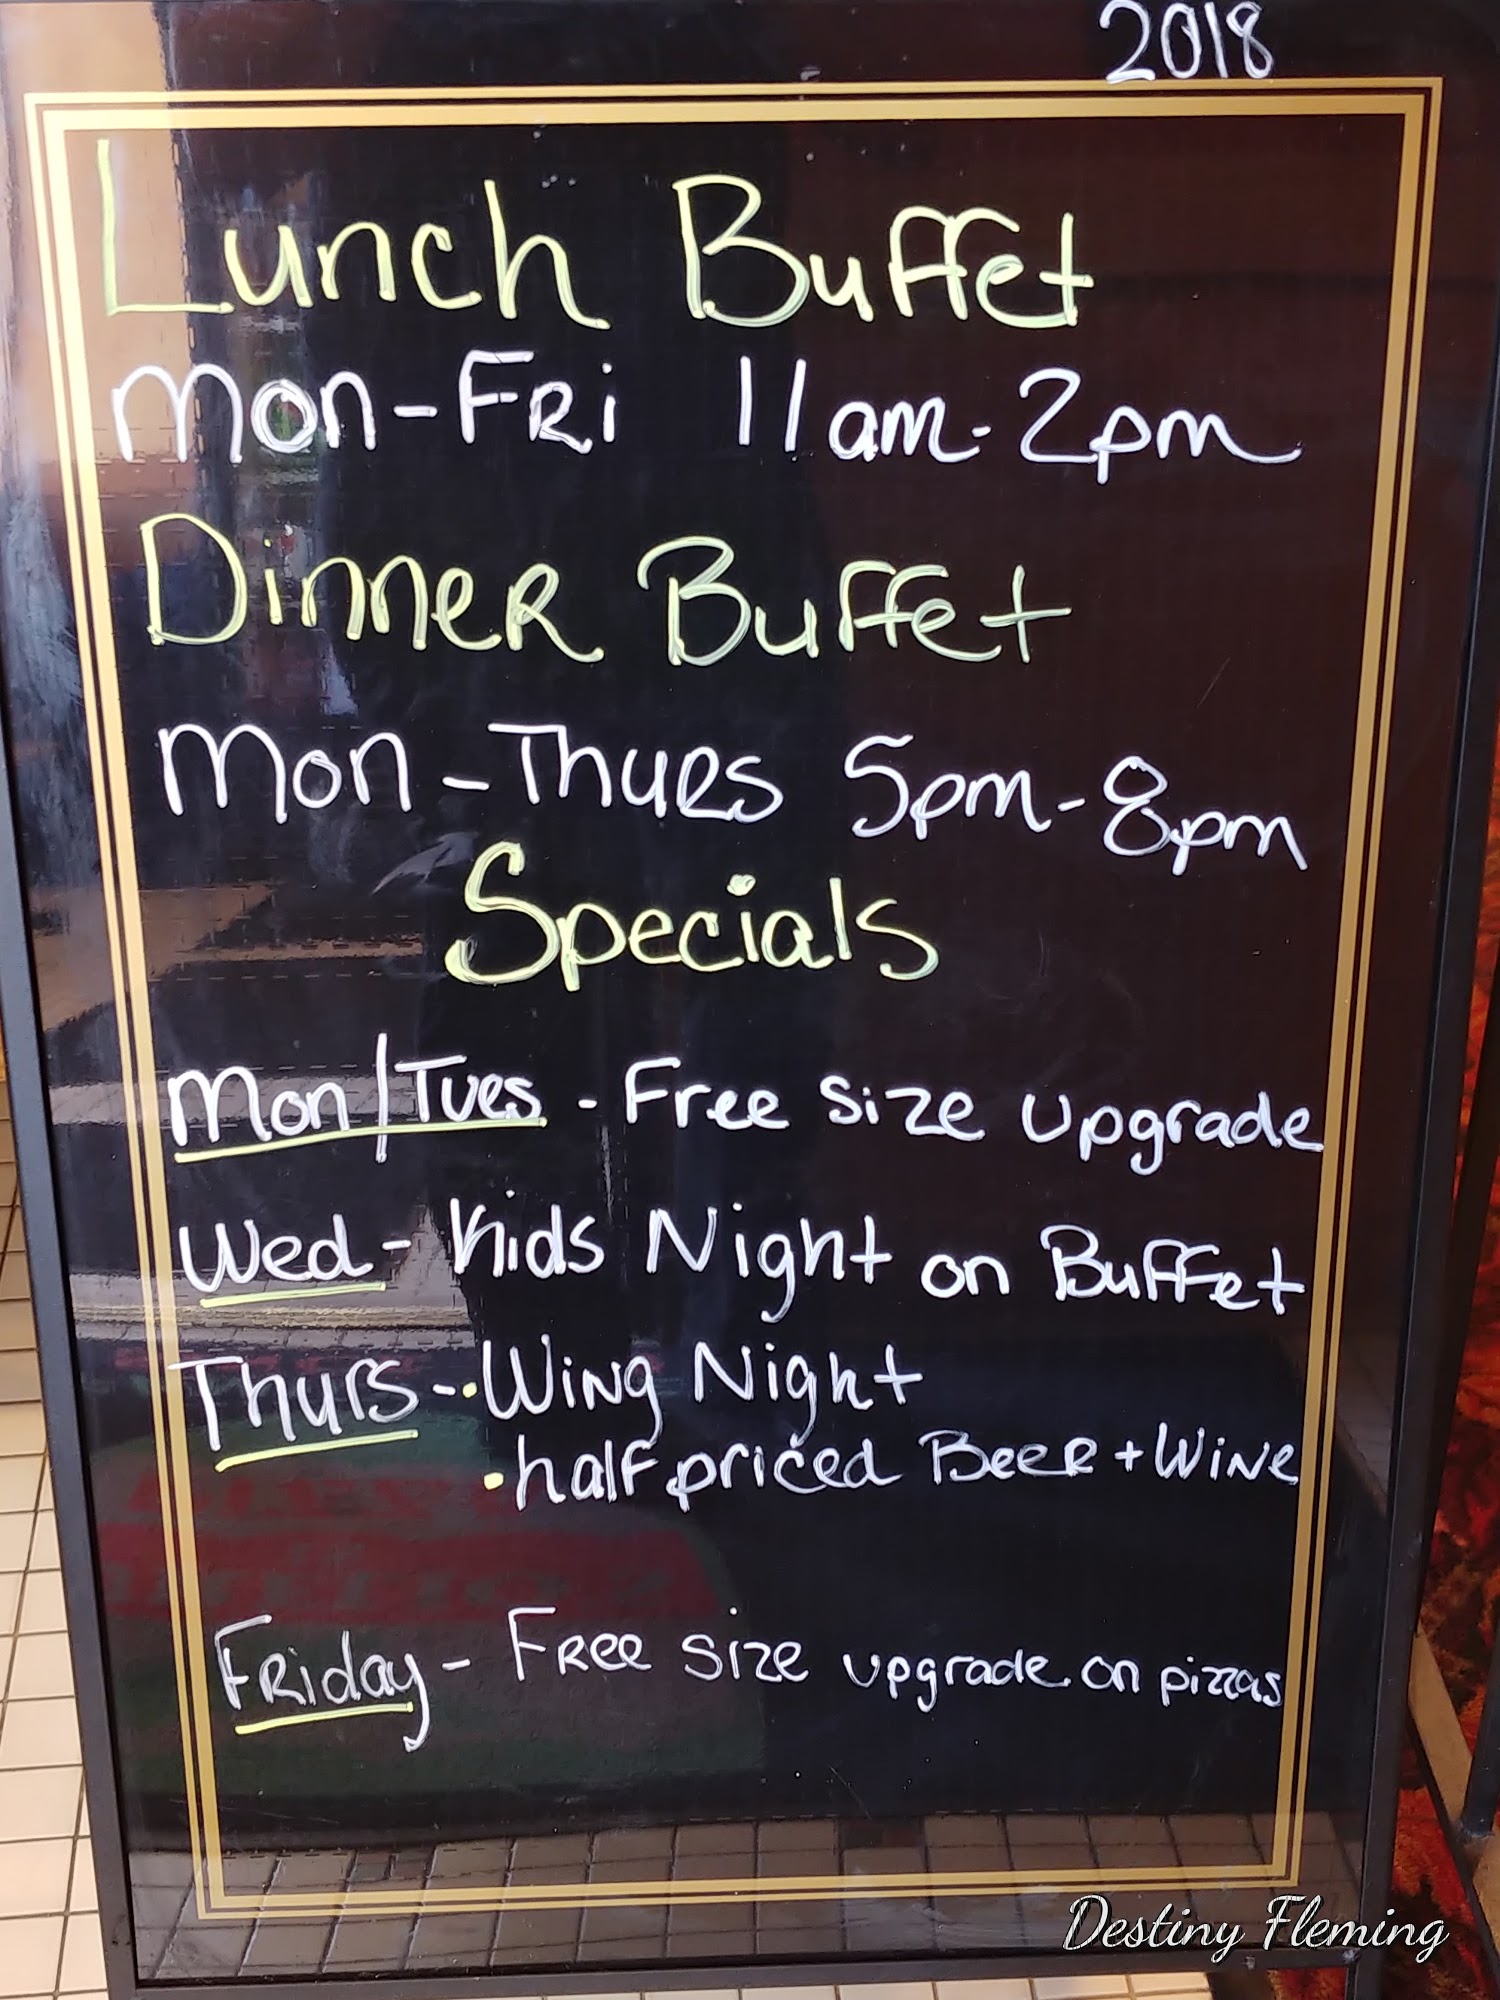 2018
Lunch Buffet
Mon-Fri 11am-2pm
Dinner Buffet
Mon-Thurs 5pm-8pm
Specials
Mon/Tues - Free size upgrade
Wed - Kids Night on Buffet
Thurs - • Wing Night
• half priced Beer + Wine
Friday - Free size upgrade on pizzas
Destiny Fleming